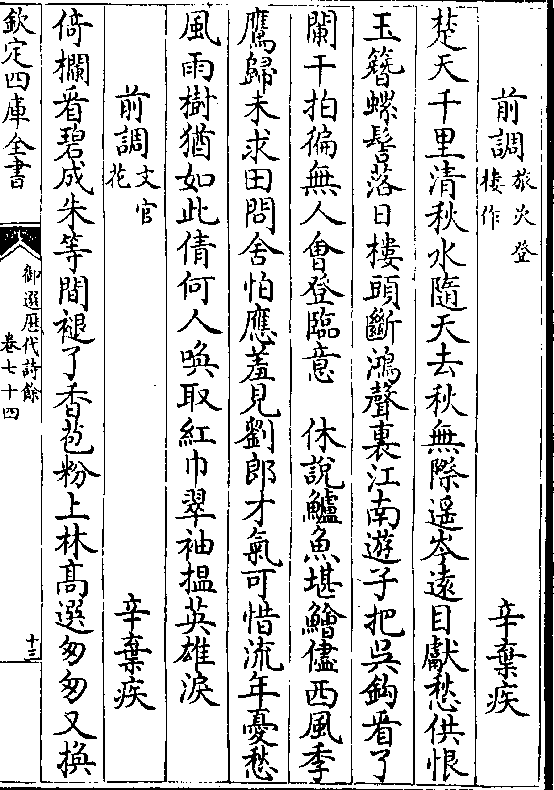 前調旅次登樓作 辛棄疾
楚天千里清秋水隨天去秋無際遥岑遠目獻愁供恨
玉簪螺髻落日樓頭斷鴻聲裏江南遊子把吳鉤看了
闌干拍徧無人會登臨意 休說鱸魚堪鱠儘西風季
鷹歸未求田問舍怕應羞見劉郎才氣可惜流年憂愁
風雨樹猶如此倩何人喚取紅巾翠袖搵英雄淚
前調文官花 辛棄疾
倚欄看碧成朱等閒褪了香苞粉上林髙選匆匆又換
欽定四庫全書
御選歴代詩餘
卷七十四
十三